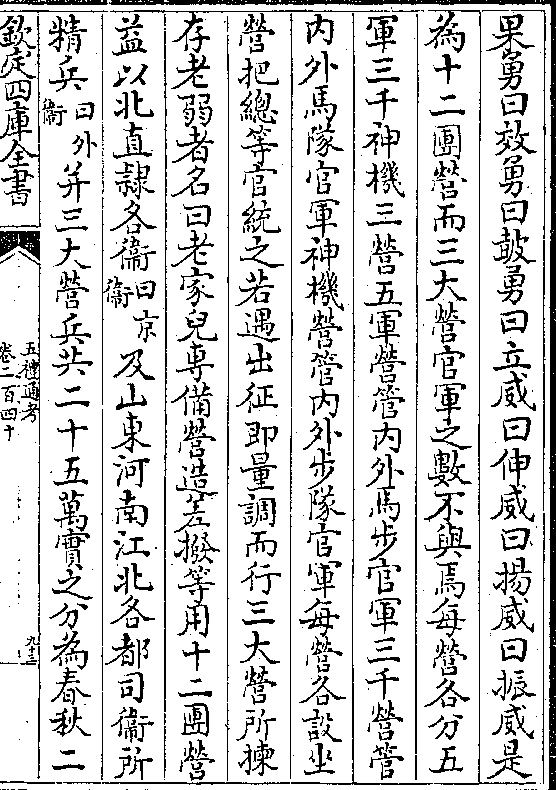 果勇曰效勇曰鼓勇曰立威曰伸威曰揚威曰振威是
為十二團營而三大營官軍之數不與焉每營各分五
軍三千神機三營五軍營管內外馬步官軍三千營管
內外馬隊官軍神機營管內外步隊官軍每營各設坐
營把總等官統之若遇出征即量調而行三大營所揀
存老弱者名曰老家兒專備營造差撥等用十二團營
益以北直隸各衞曰京衞及山東河南江北各都司衞所
精兵曰外衞并三大營兵共二十五萬實之分為春秋二
欽定四庫全書
五禮通考
卷二百四十
九十三